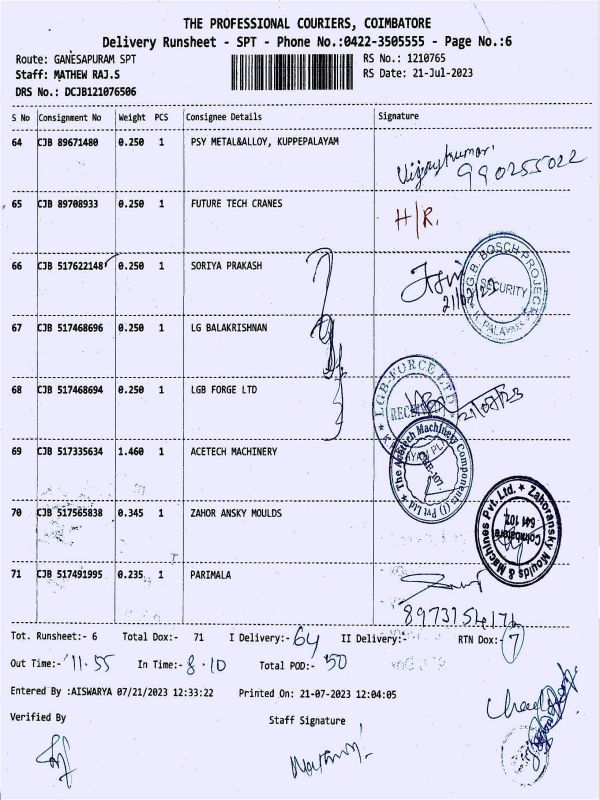 THE PROFESSIONAL COURIERS, COIMBATORE
Delivery Runsheet - SPT - Phone No.:0422-3505555 - Page No.:6
Route: GANESAPURAM SPT RS No.: 1210765
Staff: MATHEW RAJ.S RS Date: 21-Jul-2023
DRS No.: DCJB121076506
S No Consignment No Weight PCS Consignee Details Signature
64 CJB 89671480 0.250 1 PSY METAL&ALLOY, KUPPEPALAYAM
Vijaykumar
990255022
65 CJB 89708933 0.250 1 FUTURE TECH CRANES
H/R.
66 CJB 517622148 0.250 1 SORIYA PRAKASH
L.G.B. BOSCH PROJECT
SECURITY
67 CJB 517468696 0.250 1 LG BALAKRISHNAN
68 CJB 517468694 0.250 1 LGB FORGE LTD
LGB-FORCE LTD
RECEIVED
21/07/23
69 CJB 517335634 1.460 1 ACETECH MACHINERY
The Acetech Machinery Components (I) Pvt Ltd
70 CJB 517565838 0.345 1 ZAHOR ANSKY MOULDS
Zahoransky Moulds & Machines Pvt. Ltd.
Coimbatore
641 107.
71 CJB 517491995 0.235 1 PARIMALA
Tot. Runsheet:- 6 Total Dox:- 71 I Delivery:- 64 II Delivery:- RTN Dox:- 7
Out Time:- 11.55 In Time:- 8.10 Total POD:- 50
Entered By :AISWARYA 07/21/2023 12:33:22 Printed On: 21-07-2023 12:04:05
Verified By Staff Signature